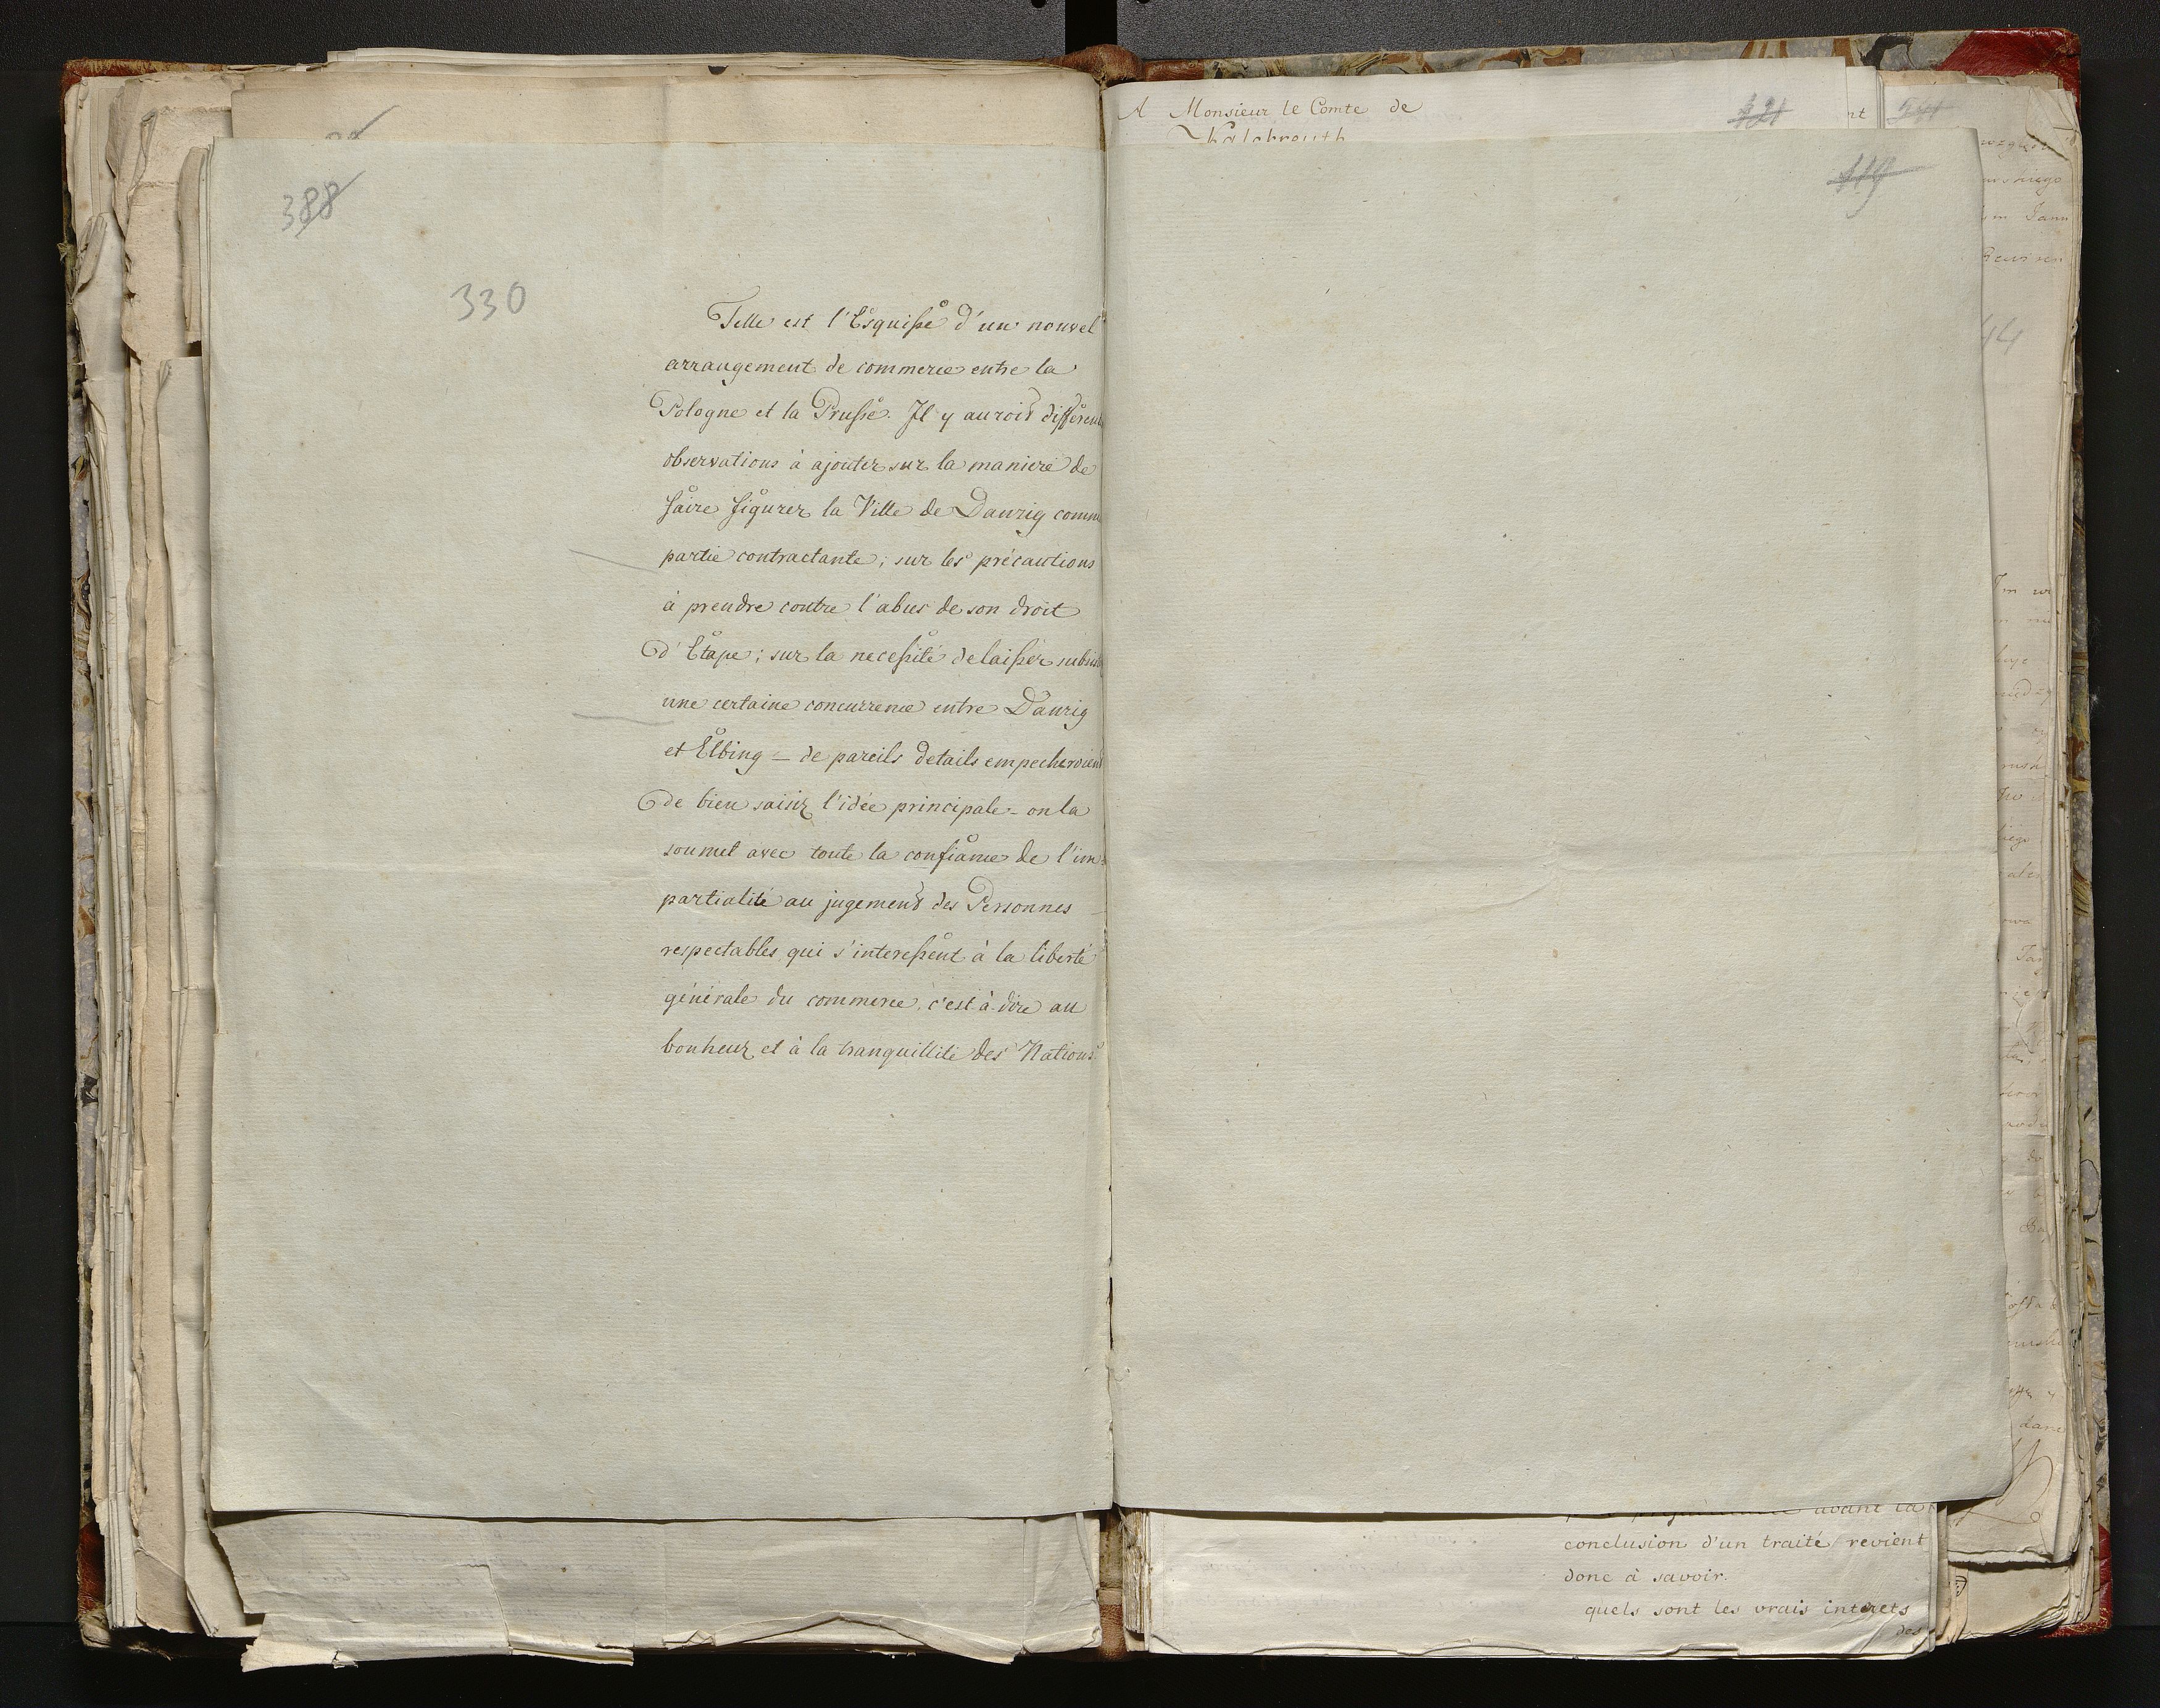 388
330
Telle est l'Esquisse d'un nouvel
arrangement de commerce entre la
Pologne et la Prusse. Il y auroit différent
observations à ajouter sur la maniere de
faire figurer la Ville de Danzig comm
partie contractante; sur les précautions
à prendre contre l'abus de son droit
d'Etape; sur la necessité de laisser subsist
une certaine concurrence entre Danzig
et Elbing — de pareils details empecheroient
de bien saisir l'idée principale - on la
soumet avec toute la confiance de l'im-
partialité au jugement des Personnes
respectables qui s'interessent à la liberté
générale du commerce, c'est-à-dire au
bonheur et à la tranquillité des Nations.
A Monsieur le Comte de
Kalckreuth
421
nt
419
44
avant la
conclusion d'un traité revient
donc à savoir.
quels sont les vrais interets
des